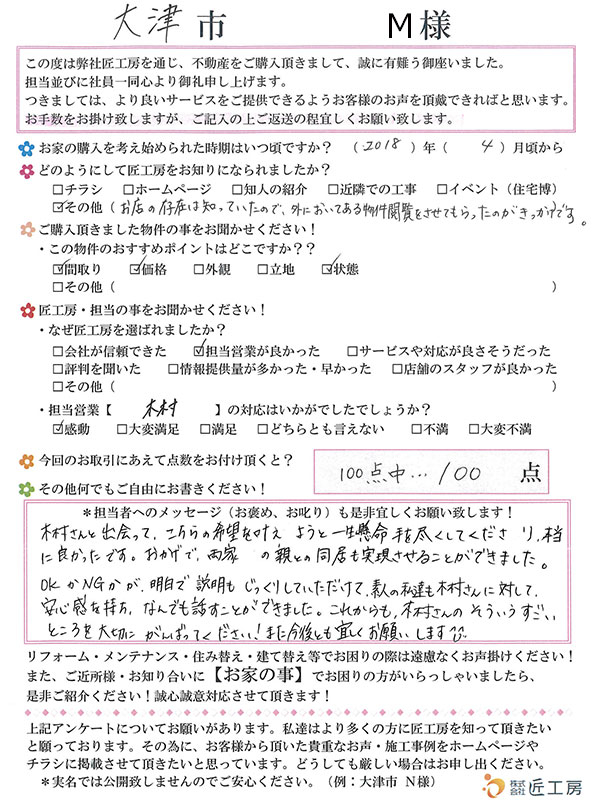 大津市 M様
この度は弊社匠工房を通じ、不動産をご購入頂きまして、誠に有難う御座いました。
担当並びに社員一同心より御礼申し上げます。
つきましては、より良いサービスをご提供できるようお客様のお声を頂戴できればと思います。
お手数をお掛け致しますが、ご記入の上ご返送の程宜しくお願い致します。
お家の購入を考え始められた時期はいつ頃ですか? (2018)年(4)月頃から
どのようにして匠工房をお知りになられましたか?
□チラシ □ホームページ □知人の紹介 □近隣での工事 □イベント(住宅博)
☑その他(お店の存在は知っていたので、外においてある物件閲覧をさせてもらったのがきっかけです。
ご購入頂きました物件の事をお聞かせください!
・この物件のおすすめポイントはどこですか??
☑間取り ☑価格 □外観 □立地 ☑状態
□その他( )
匠工房・担当の事をお聞かせください!
・なぜ匠工房を選ばれましたか?
□会社が信頼できた ☑担当営業が良かった □サービスや対応が良さそうだった
□評判を聞いた □情報提供量が多かった・早かった □店舗のスタッフが良かった
□その他( )
・担当営業【 木村 】の対応はいかがでしたでしょうか?
☑感動 □大変満足 □満足 □どちらとも言えない □不満 □大変不満
今回のお取引にあえて点数をお付け頂くと? 100点中…100 点
その他何でもご自由にお書きください!
*担当者へのメッセージ(お褒め、お叱り)も是非宜しくお願い致します!
木村さんと出会って、こちらの希望を叶えようと一生懸命手を尽くしてくださり、本当
に良かったです。おかげで、両家の親との同居も実現させることができました。
OKかNGかが、明白で説明もじっくりしていただけて、素人の私達も木村さんに対して、
安心感を持ち、なんでも話すことができました。これからも、木村さんのそういうすごい
ところを大切にがんばってください!また今後とも宜しくお願いします
リフォーム・メンテナンス・住み替え・建て替え等でお困りの際は遠慮なくお声掛けください!
また、ご近所様・お知り合いに【お家の事】でお困りの方がいらっしゃいましたら、
是非ご紹介ください!誠心誠意対応させて頂きます!
上記アンケートについてお願いがあります。私達はより多くの方に匠工房を知って頂きたい
と願っております。その為に、お客様から頂いた貴重なお声・施工事例をホームページや
チラシに掲載させて頂きたいと思っています。どうしても厳しい場合はお申し出ください。
*実名では公開致しませんのでご安心ください。(例:大津市 N様)
株式会社 匠工房